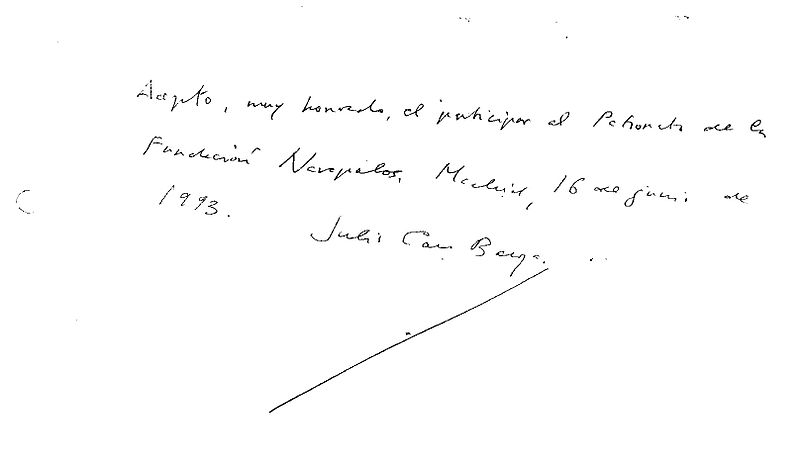 Acepto, muy honrado, el participar al Patronato de la
Fundación Navapalos. Madrid, 16 de junio de
1993.
Julio Caro Baroja.